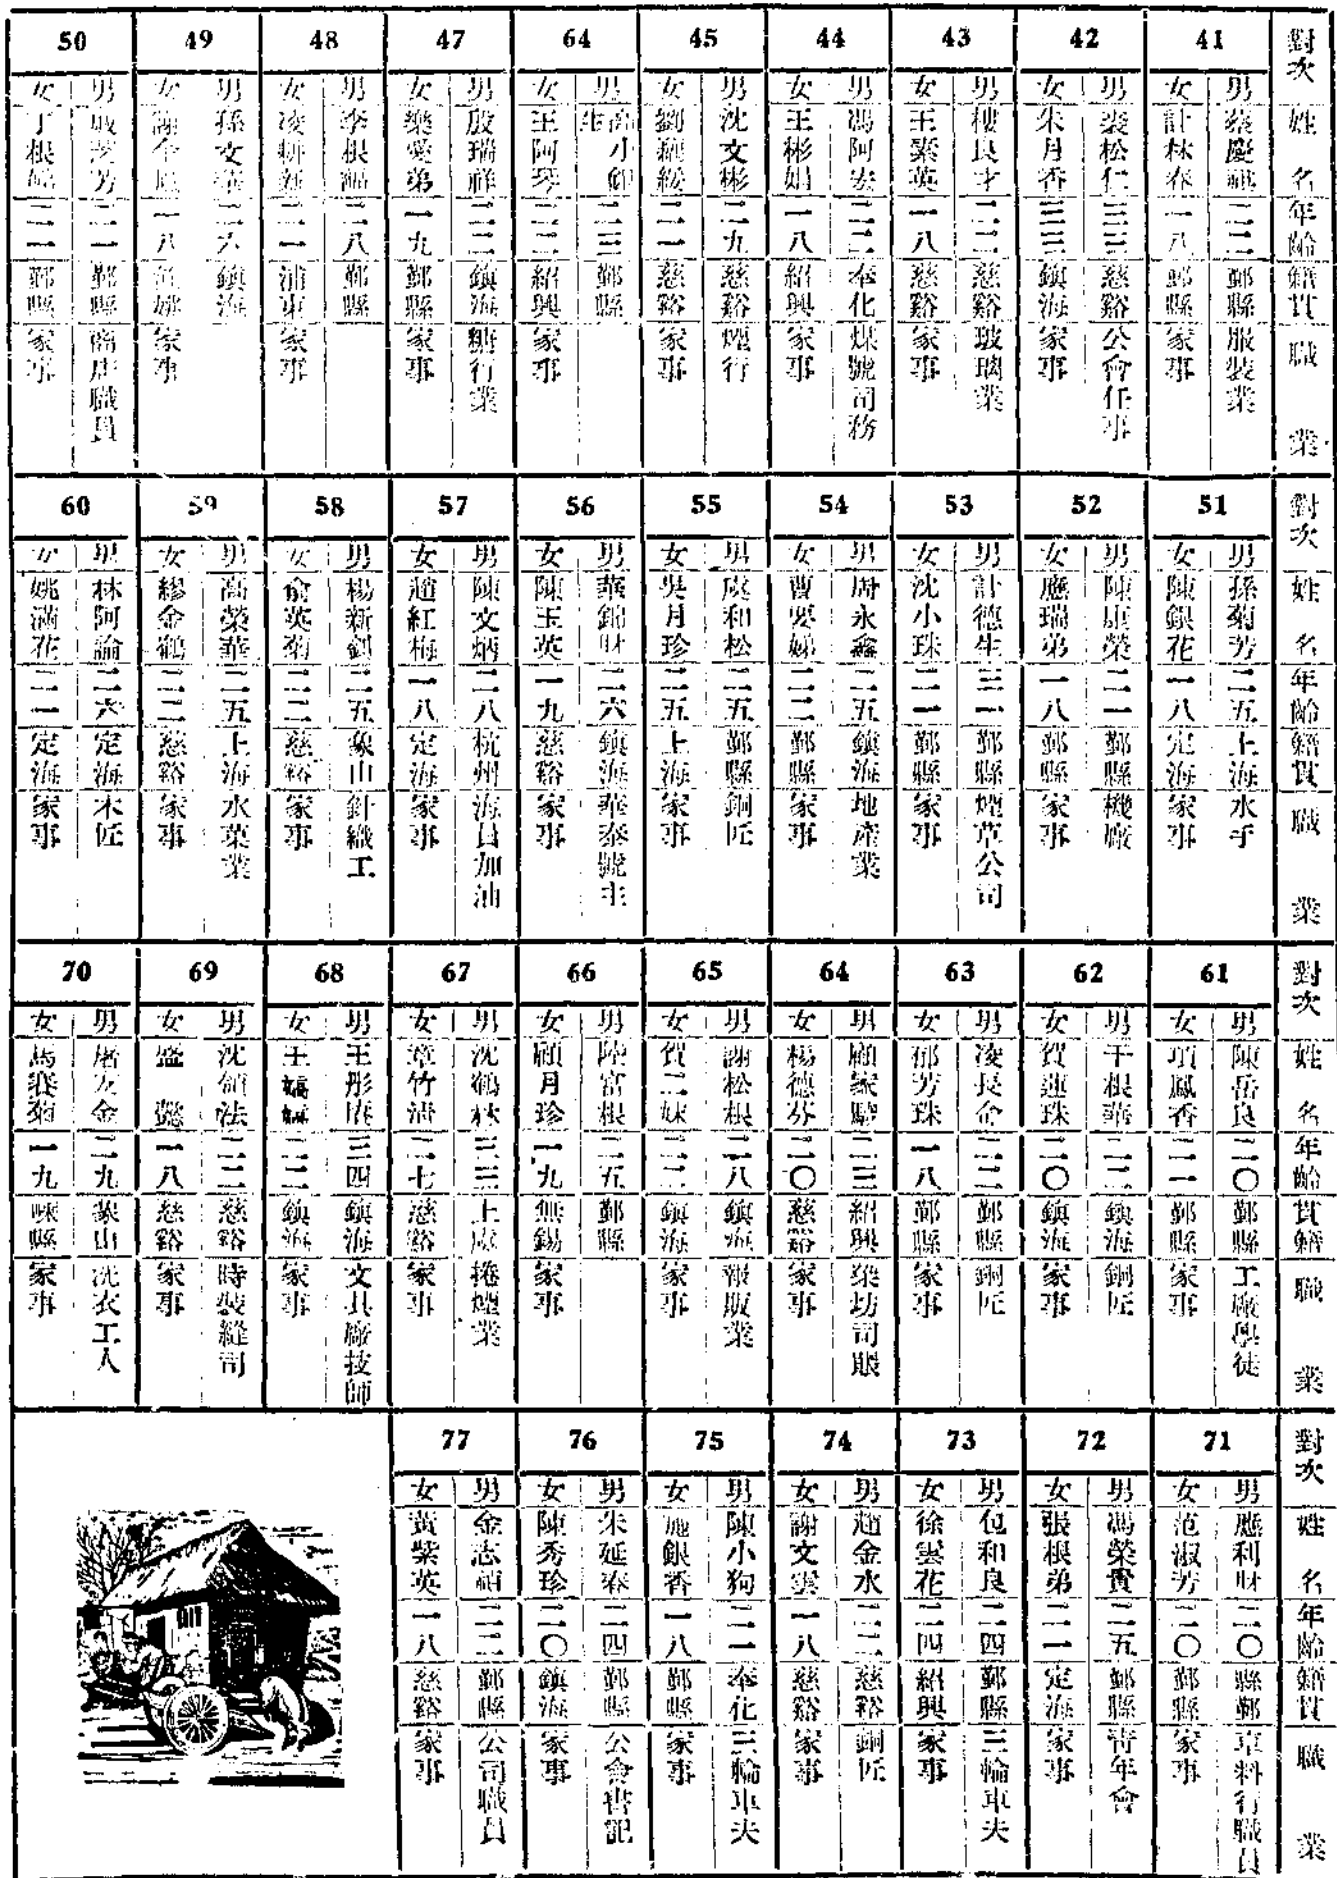 對次 姓名 年齡 籍貫 職業
41
男 蔡慶 二二 鄞縣 服裝業
女 計林春 一八 鄞縣 家事
42
男 裘松仁 三三 慈谿 公會任事
女 朱月香 三三 鎮海 家事
43
男 樓良才 二二 慈谿 玻璃業
女 王素英 一八 慈谿 家事
44
男 馮阿宏 二二 奉化 煤號司務
女 王彬娟 一八 紹興 家事
45
男 沈文彬 二九 慈谿 煙行
女 劉綏 二一 慈谿 家事
64
男 高小生 二三 鄞縣
女 王阿琴 二二 紹興 家事
47
男 殷瑞祥 二二 鎮海 糖行業
女 樂愛弟 一九 鄞縣 家事
48
男 李根福 二八 鄞縣
女 凌 二一 浦東 家事
49
男 孫文 二六 鎮海
女 謝 一八 家事
50
男 芳 二一 鄞縣 商店職員
女 丁根 二一 鄞縣 家事
對次 姓名 年齡 籍貫 職業
51
男 孫菊芳 二五 上海 水手
女 陳銀花 一八 定海 家事
52
男 陳康榮 二一 鄞縣 機廠
女 應瑞弟 一八 鄞縣 家事
53
男 計德生 三一 鄞縣 煙草公司
女 沈小珠 二一 鄞縣 家事
54
男 周永鑫 二五 鎮海 地產業
女 曹娣 二二 鄞縣 家事
55
男 虞和松 二五 鄞縣 銅匠
女 吳月珍 二五 上海 家事
56
男 華錦財 二六 鎮海 華泰號主
女 陳玉英 一九 慈谿 家事
57
男 陳文炳 二八 杭州 海員加油
女 趙紅梅 一八 定海 家事
58
男 楊新釗 二五 象山 針織工
女 俞英菊 二二 慈谿 家事
59
男 高榮華 二五 上海 水菓業
女 繆金鶴 二二 慈谿 家事
60
男 林阿論 二六 定海 木匠
女 姚滿花 二一 定海 家事
對次 姓名 年齡 貫籍 職業
61
男 陳岳良 二〇 鄞縣 工廠學徒
女 項鳳香 二一 鄞縣 家事
62
男 干根華 二二 鎮海 銅匠
女 賀蓮珠 二〇 鎮海 家事
63
男 凌長金 二二 鄞縣 銅匠
女 郁芳珠 一八 鄞縣 家事
64
男 顧家驥 二三 紹興 染坊司賬
女 楊德芬 二〇 慈谿 家事
65
男 謝松根 二八 鎮海 報販業
女 賀二妹 二二 鎮海 家事
66
男 陸富根 二五 鄞縣
女 顧月珍 一九 無錫 家事
67
男 沈鶴林 三三 上虞 捲煙業
女 章竹清 二七 慈谿 家事
68
男 王彤 三四 鎮海 文具廠技師
女 王 二二 鎮海 家事
69
男 沈領法 二二 慈谿 時裝縫司
女 盛懿 一八 慈谿 家事
70
男 屠友金 二九 象山 洗衣工人
女 馬賽菊 一九 嵊縣 家事
對次 姓名 年齡 籍貫 職業
71
男 應利財 二〇 縣鄞 車料行職員
女 范淑芳 二〇 鄞縣 家事
72
男 馮榮貴 二五 鄞縣 青年會
女 張根弟 二一 定海 家事
73
男 包和良 二四 鄞縣 三輪車夫
女 徐雲花 二四 紹興 家事
74
男 趙金水 二二 慈谿 銅匠
女 謝文雲 一八 慈谿 家事
75
男 陳小狗 二一 奉化 三輪車夫
女 施銀香 一八 鄞縣 家事
76
男 朱延春 二四 鄞縣 公會書記
女 陳秀珍 二〇 鎮海 家事
77
男 金志 二二 鄞縣 公司職員
女 黃紫英 一八 慈谿 家事